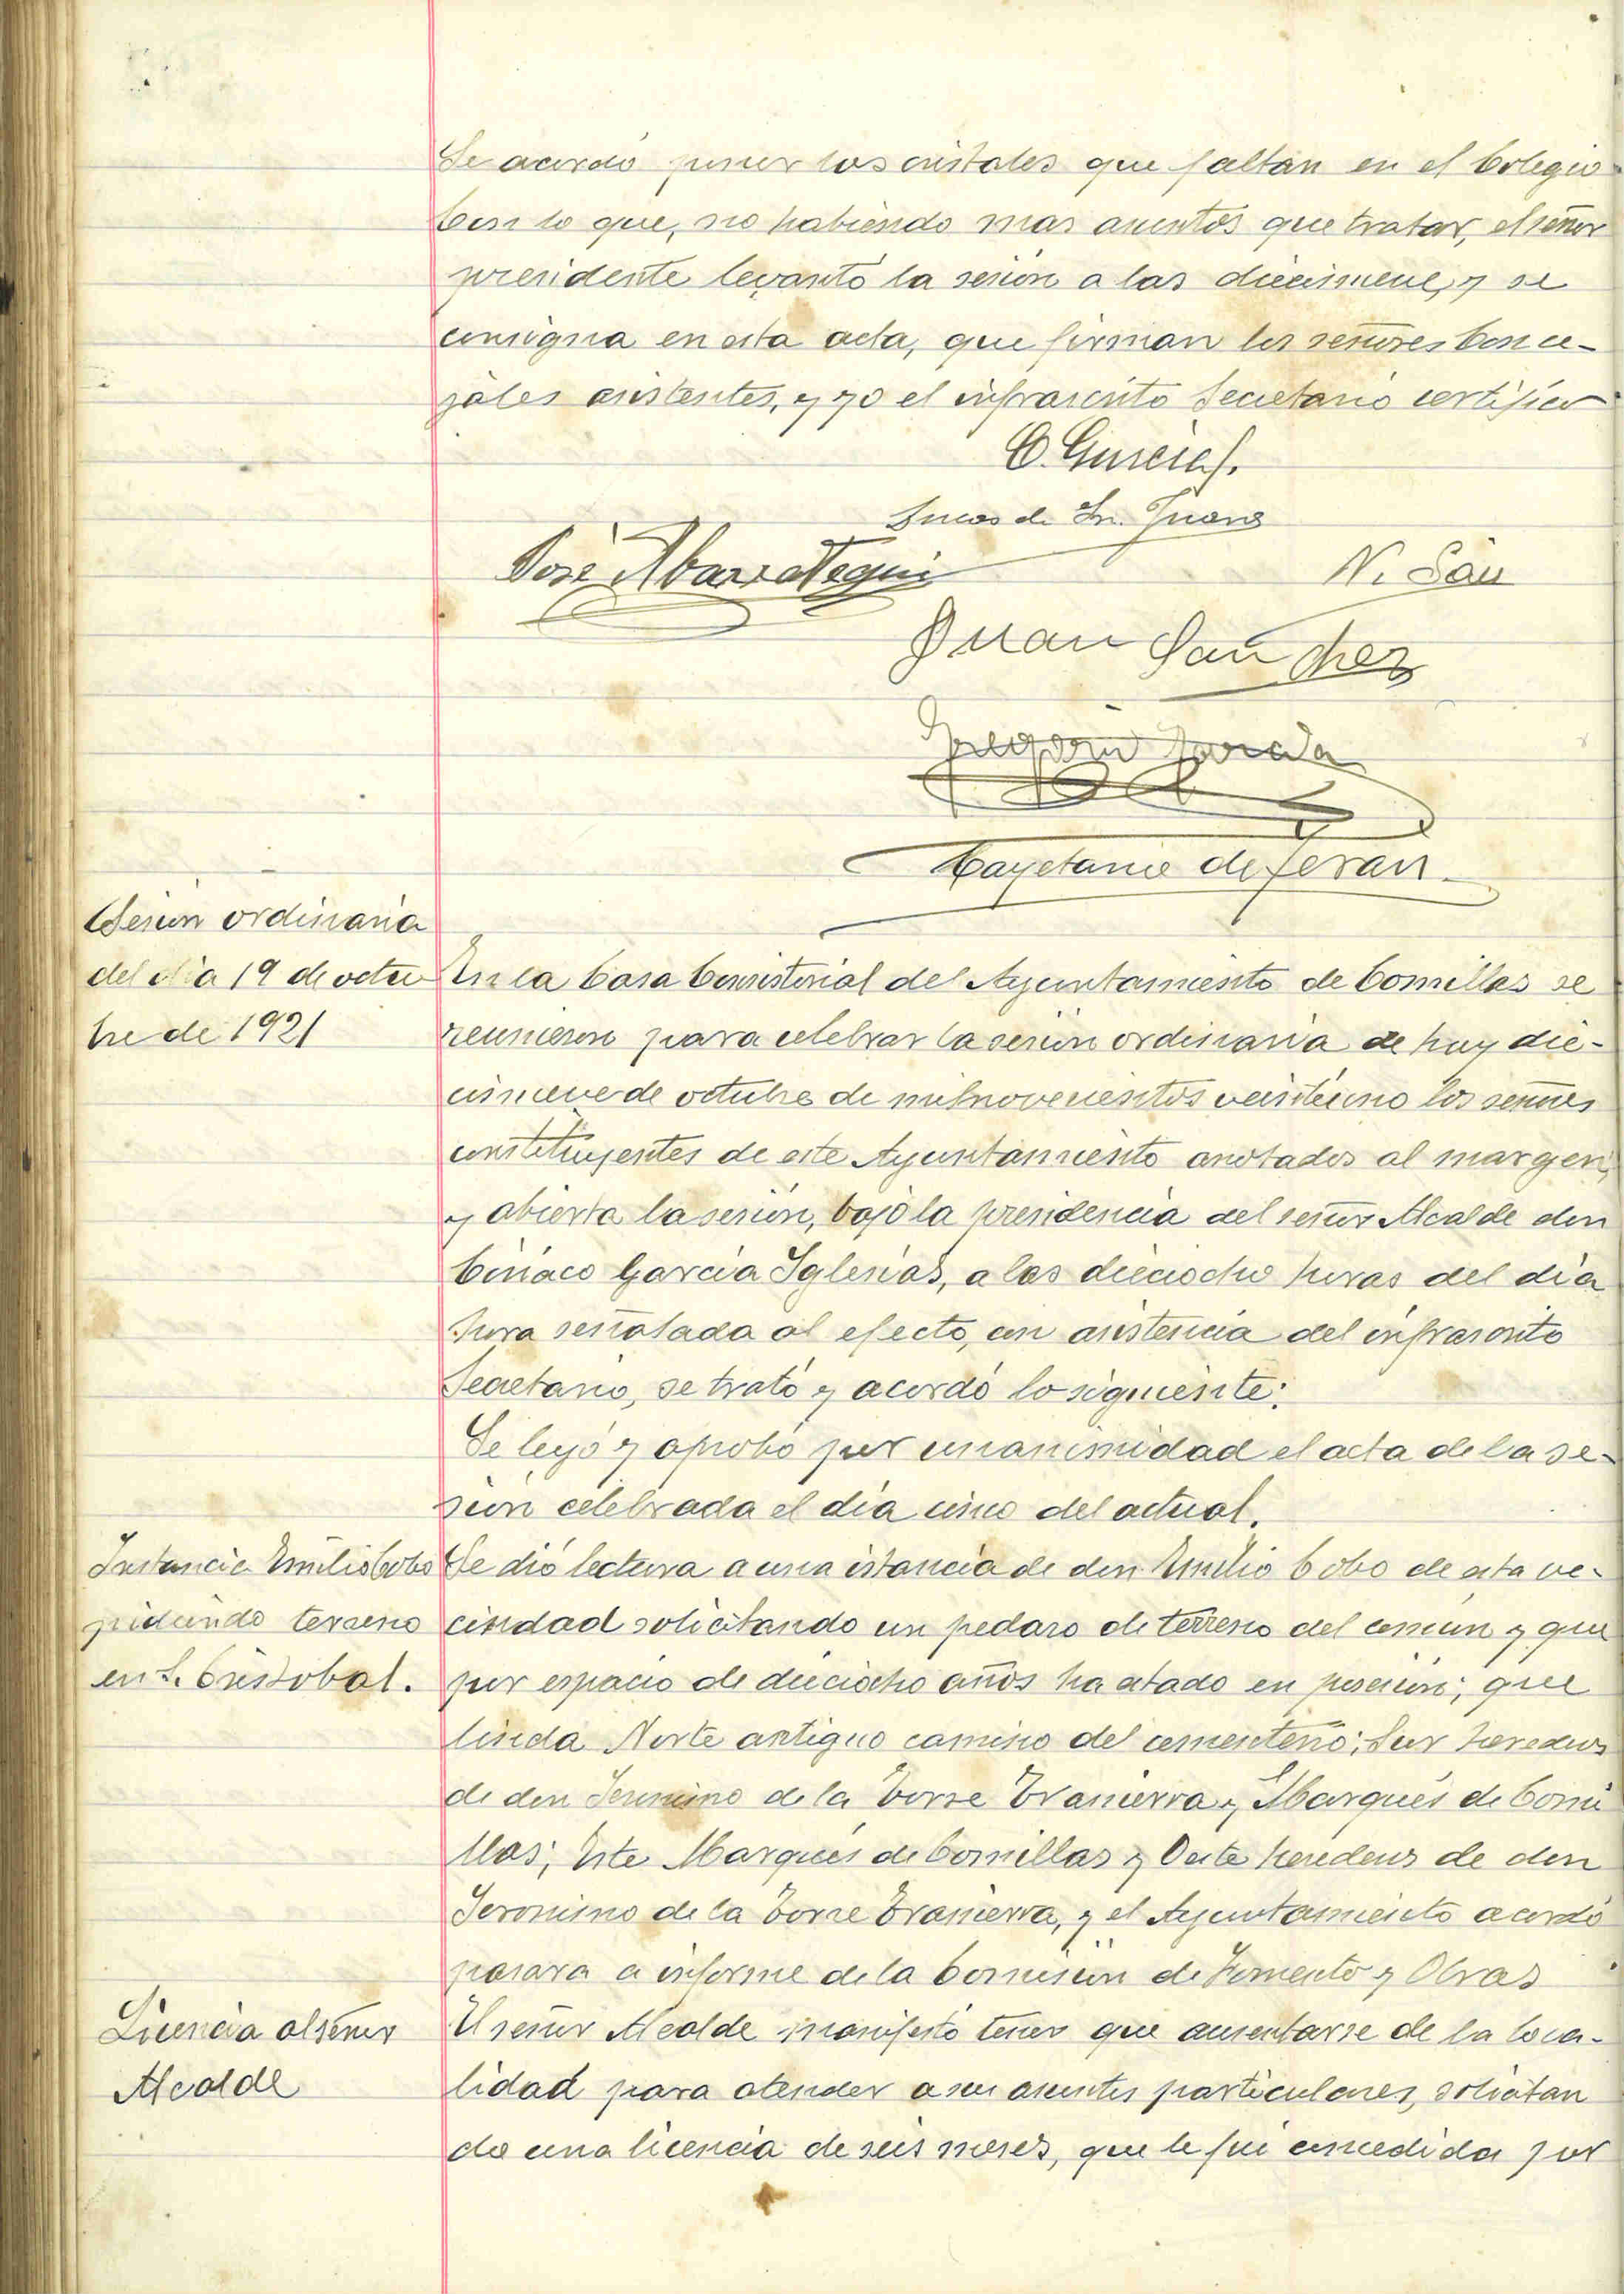 Se acordó poner los cristales que faltan en el Colegio
Con lo que, no habiendo mas asuntos que tratar, el señor
presidente levantó la sesion a las diecinueve, y se
consigna en esta acta, que firman los señores Conce-
jales asistentes, y yo el infrascrito Secretario certifico
C. García I.
Lucas de Sn. Juan
José Abarrategui
N. Sán
Juan Sanchez
Gregorio
Cayetano de Teran
Sesion ordinaria
del dia 19 de octu
bre de 1921
En la Casa Consistorial del Ayuntamiento de Comillas se
reunieron para celebrar la sesion ordinaria de hoy die-
cinueve de octubre de mil novecientos veintiuno los señores
constituyentes de este Ayuntamiento anotados al margen,
y abierta la sesion, bajo la presidencia del señor Alcalde don
Ciriaco Garcia Iglesias, a las dieciocho horas del dia
hora señalada al efecto, con asistencia del infrascrito
Secretario, se trató y acordó lo siguiente:
Se leyó y aprobó por unanimidad el acta de la se-
sion celebrada el dia cinco del actual.
Instancia Emilio Cobo
pidiendo terreno
en S. Cristobal.
Se dió lectura a una istancia de don Emilio Cobo de esta ve-
cindad solicitando un pedazo de terreno del comun y que
por espacio de dieciocho años ha estado en posesion; que
linda Norte antiguo camino del cementerio; Sur herederos
de don Jeronimo de la Torre Trassierra y Marqués de Comi
llas; Este Marqués de Comillas y Oeste herederos de don
Jeronimo de la Torre Trassierra, y el Ayuntamiento acordó
pasara a informe de la Comision de Fomento y Obras
Licencia al señor
Alcalde
El señor Alcalde manifestó tener que ausentarse de la loca-
lidad para atender a sus asuntos particulares, solicitan
do una licencia de seis meses, que le fue concedida por